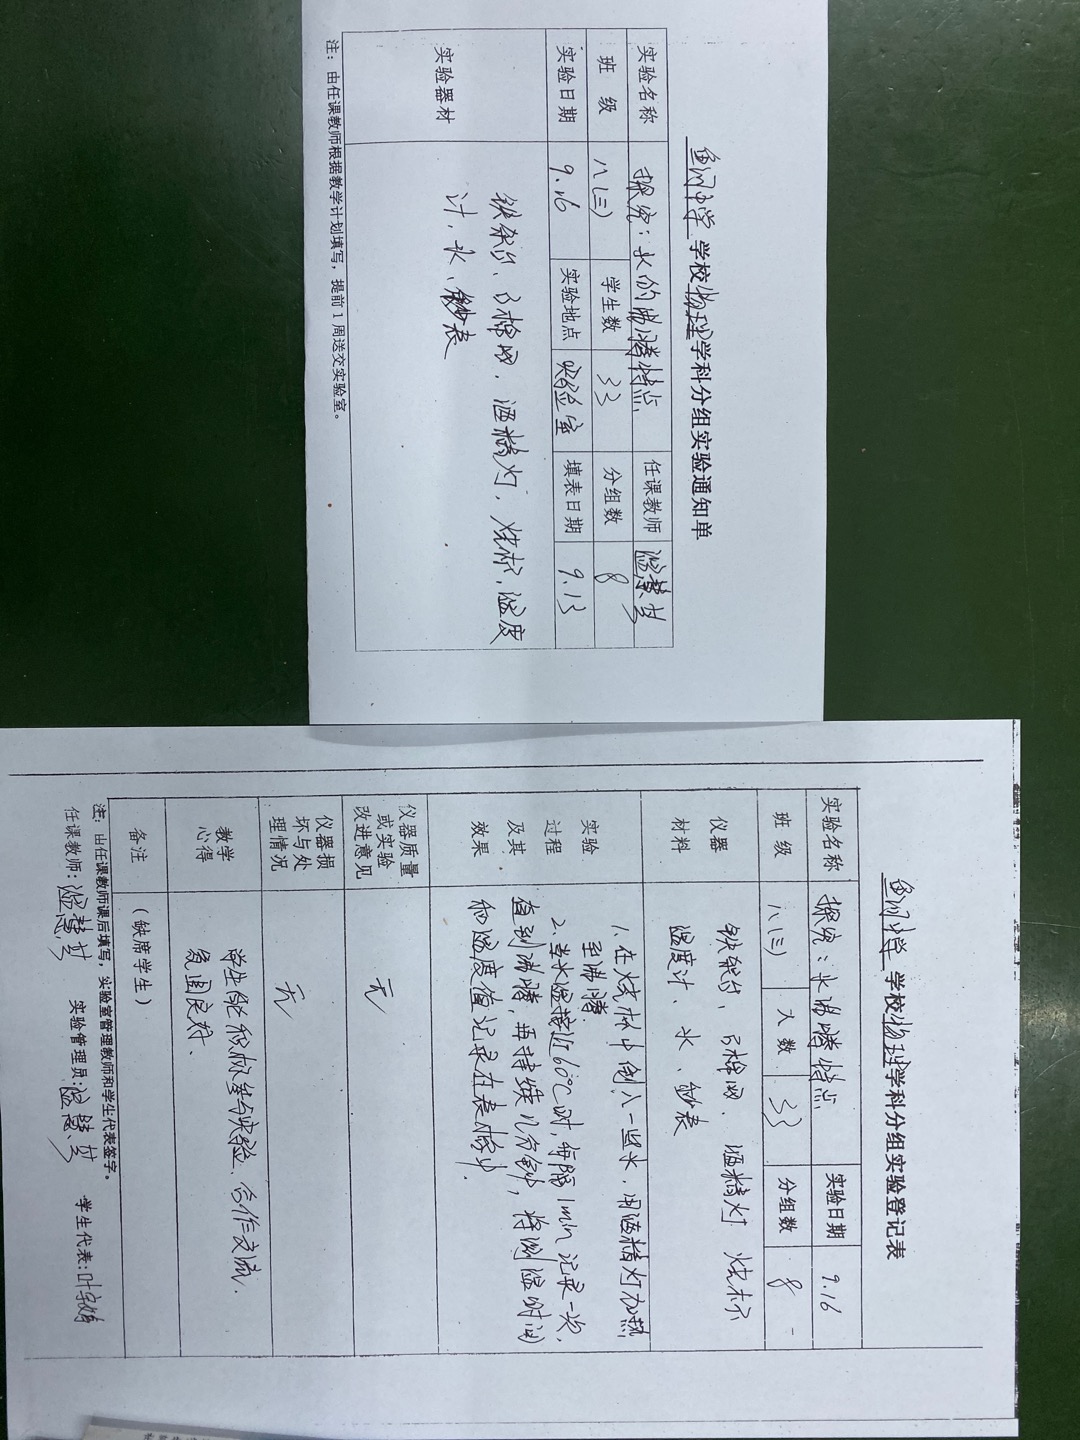 鱼河中学 学校物理学科分组实验通知单
实验名称 探究:水的沸腾特点 任课教师
班 级 八(三) 学生数 33 分组数 8
实验日期 9.16 实验地点 实验室 填表日期 9.13
实验器材
铁架台、石棉网、酒精灯,烧杯,温度
计,水、秒表
注:由任课教师根据教学计划填写,提前1周送交实验室。
鱼河中学 学校物理学科分组实验登记表
实验名称 探究:水沸腾特点 实验日期 9.16
班 级 八(三) 人 数 33 分组数 8
仪器
材料
铁架台、石棉网、酒精灯 烧杯
温度计、水、秒表
实验
过程
及其
效果
1、在烧杯中倒入一些水,用酒精灯加热
至沸腾.
2、当水温接近60℃时,每隔1min记录一次,
直到沸腾,再持续几分钟,将测温时间
和温度值记录在表格中.
仪器质量
或实验
改进意见
无
仪器损
坏与处
理情况
无
教学
心得
学生能积极参与实验、合作交流.
氛围良好、
备注 (缺席学生)
注:由任课教师课后填写,实验室管理教师和学生代表签字。
任课教师: 实验管理员: 学生代表: